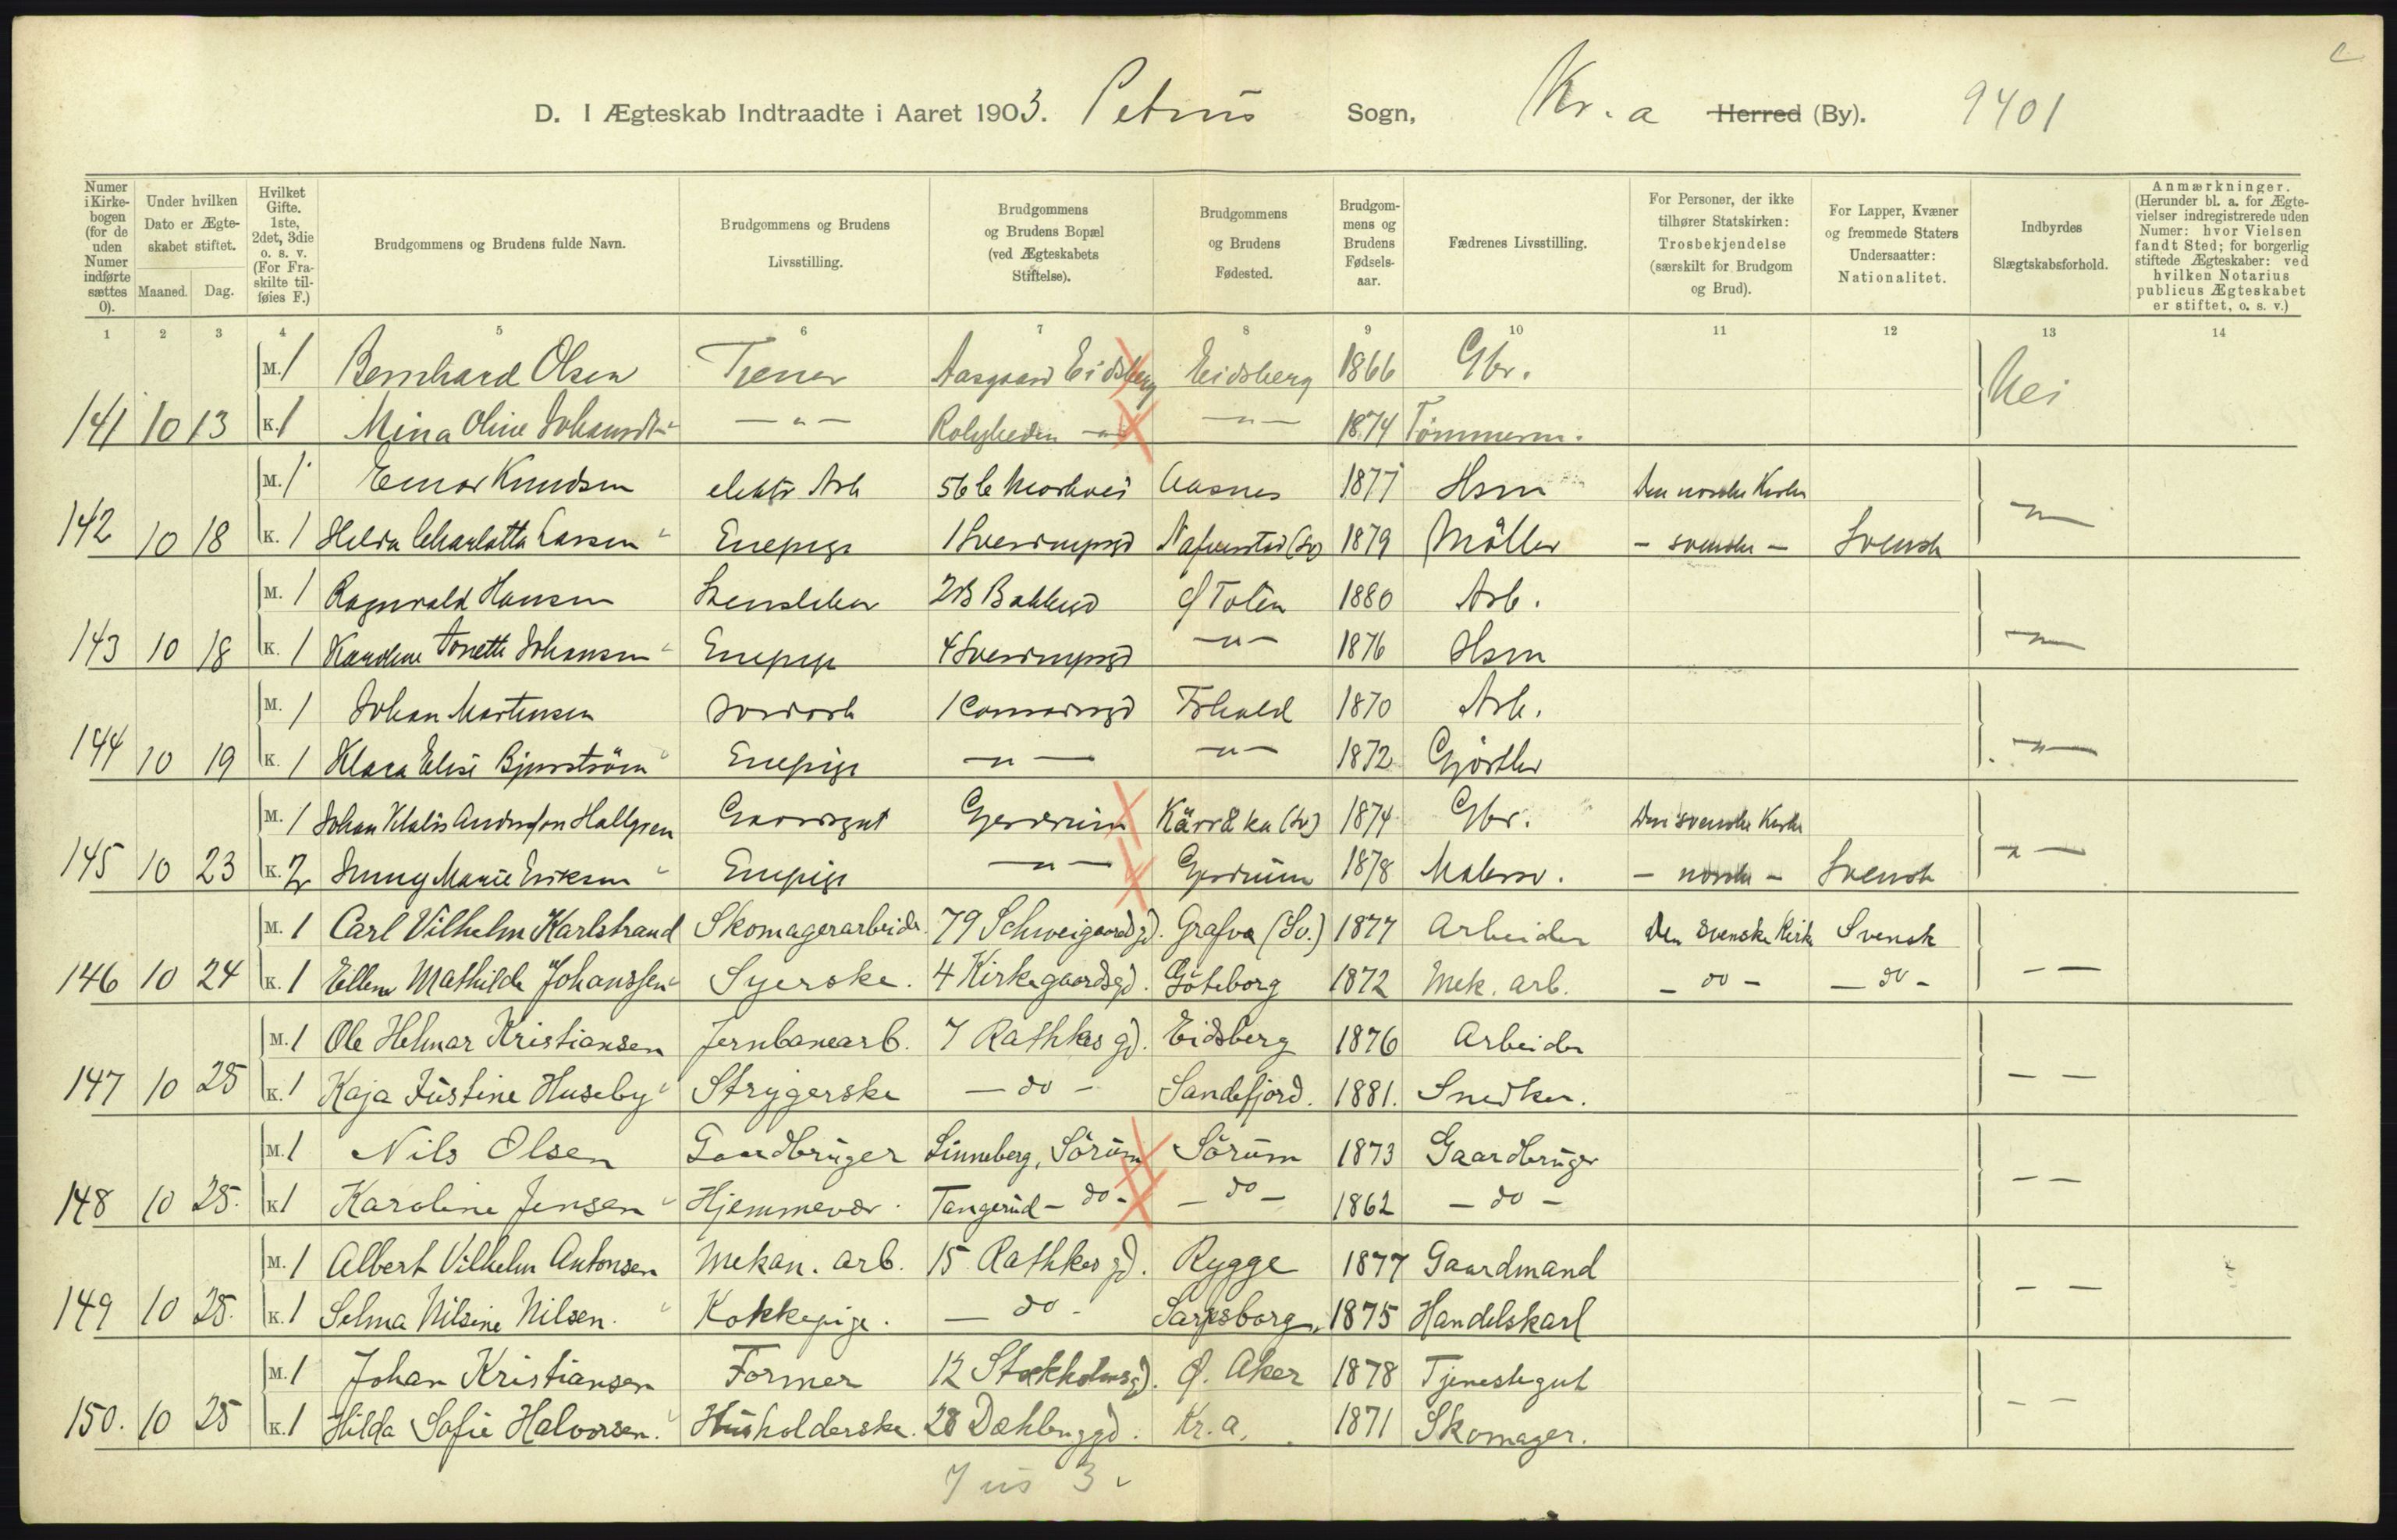 D. I Ægteskab Indtraadte i Aaret 1903. Petrus Sogn, Kr.a Herred (By). 9401
Numer i Kirkebogen (for de uden Numer indførte sættes 0).
Under hvilken Dato er Ægteskabet stiftet.
Maaned. Dag.
Hvilket Gifte. 1ste, 2det, 3die o. s. v. (For Fraskilte tilføies F.)
Brudgommens og Brudens fulde Navn.
Brudgommens og Brudens Livsstilling.
Brudgommens og Brudens Bopæl (ved Ægteskabets Stiftelse).
Brudgommens og Brudens Fødested.
Brudgommens og Brudens Fødselsaar.
Fædrenes Livsstilling.
For Personer, der ikke tilhører Statskirken: Trosbekjendelse (særskilt for Brudgom og Brud).
For Lapper, Kvæner og fremmede Staters Undersaatter: Nationalitet.
Indbyrdes Slægtskabsforhold.
Anmærkninger. (Herunder bl. a. for Ægtevielser indregistrerede uden Numer: hvor Vielsen fandt Sted; for borgerlig stiftede Ægteskaber: ved hvilken Notarius publicus Ægteskabet er stiftet, o. s. v.)
1 2 3 4 5 6 7 8 9 10 11 12 13 14
M. 1 Bernhard Olsen Tjener Aasgaard Eidsberg Eidsberg 1866 Gbr. Nei
141 10 13 K. 1 Mina Oline — " — Roligheden — " — — " — 1874 Tømmerm.
M. 1 Einar Knudsen elektr Arb 56 b Aasnes 1877 Hsm Den norske Kirke
142 10 18 K. 1 Helda Charlotta Larsen Enepige 1 (Sv) 1879 Møller — svenske — Svensk — " —
M. 1 Ragnvald Hansen 2B Bakkegd Ø Toten 1880 Arb.
143 10 18 K. 1 Karoline Tonette Johansen Enepige 4 — " — 1876 Hsm — " —
M. 1 Johan Martinsen 1 Frhald 1870 Arb.
144 10 19 K. 1 Klara Elise Bjurström Enepige — " — — " — 1872 Gjørtler — " —
M. 1 Johan Klabis Andersson Hallgren Gaardsgut Gjerdrum (Sv) 1874 Gbr. Den svenske Kirke
145 10 23 K. 2 Marie Eriksen Enepige — " — Gjerdrum 1878 Malersv. — norske — Svensk — " —
M. 1 Carl Vilhelm Karlstrand Skomagerarbeider. 79 Schweigaardsgd. Grafva (Sv.) 1877 Arbeider Den svenske Kirke Svensk
146 10 24 K. 1 Ellen Mathilde Johanssen Syerske. 4 Kirkegaardsgd. Göteborg 1872 Mek. arb. — do — — do — — —
M. 1 Ole Helmar Kristiansen Jernbanearb. 7 Rathkes gd. Eidsberg 1876 Arbeider
147 10 25 K. 1 Kaja Justine Huseby Strygerske — do — Sandefjord. 1881. Snedker. — —
M. 1 Nils Olsen Gaardbruger Linneberg, Sørum Sørum 1873 Gaardbruger
148 10 25. K. 1 Karoline Jensen Hjemmevær. Tangerud — do — — do — 1862 — do — — —
M. 1 Albert Vilhelm Antonsen Mekan. arb. 15 Rathkes gd. Rygge 1877 Gaardmand
149 10 25. K. 1 Selma Nilsine Nilsen. Kokkepige. — do — Sarpsborg. 1875 Handelskarl — —
M. 1 Johan Kristiansen Former 12 Stokholmsgd. Ø. Aker 1878 Tjenestegut
150. 10 25 K. 1 Hilda Sofie Halvorsen. Husholderske. 28 Dahlenggd. Kr.a. 1871 Skomager. — —